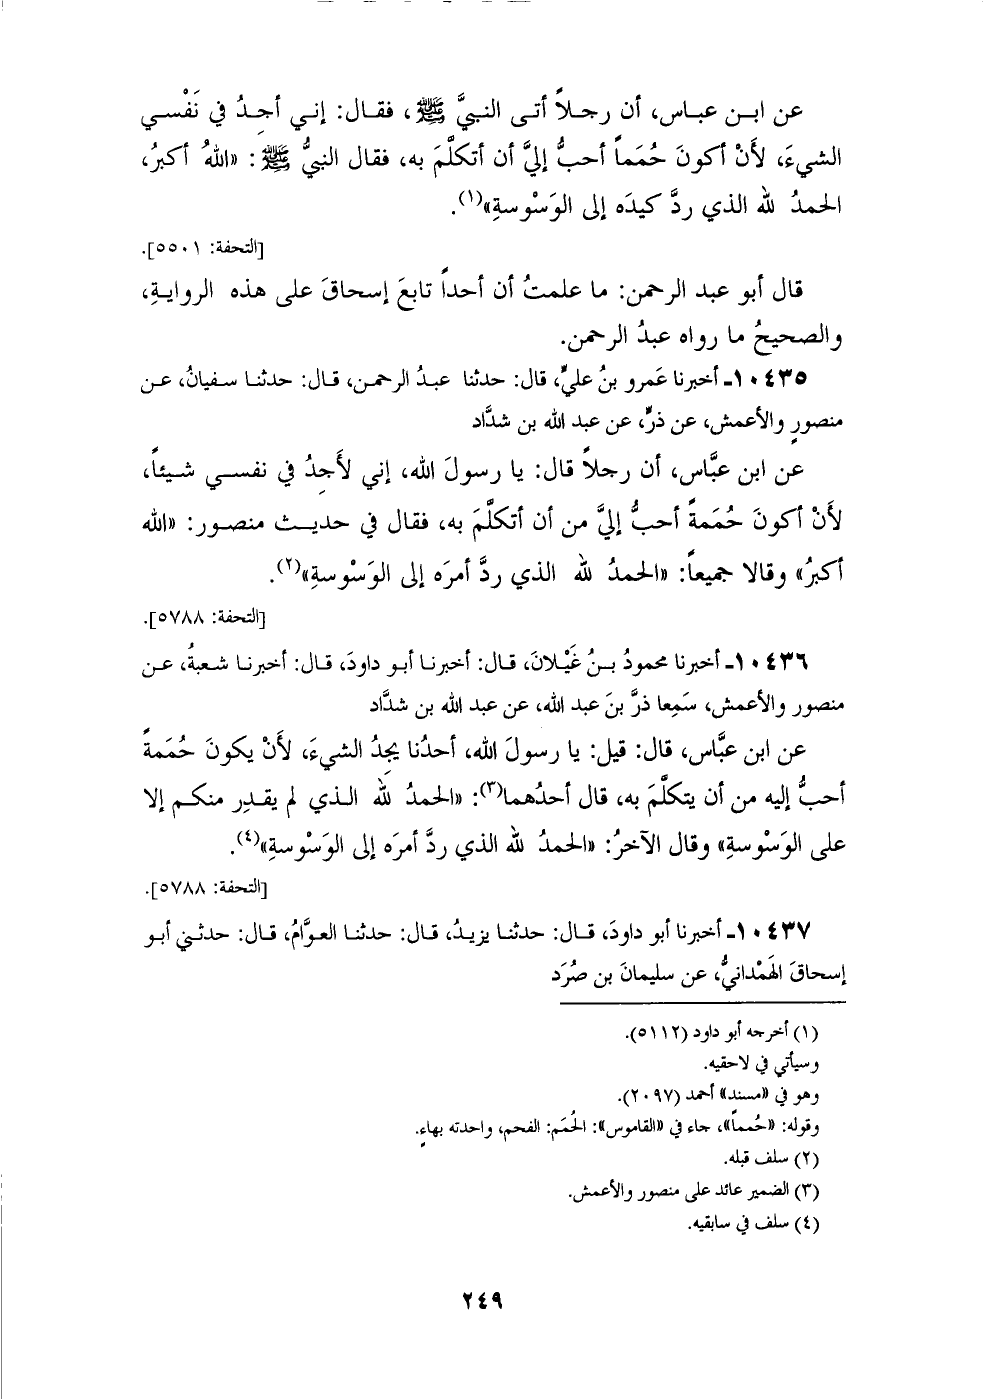 عن ابـن عبـاس، أن رجـلاً أتـى النبـيَّ ﷺ، فقـال: إنـي أجـدُ في نَفْسـي
الشيءَ، لأَنْ أكونَ حُمَماً أحبُّ إليَّ أن أتكلَّمَ به، فقال النبيُّ ﷺ: «اللهُ أكبرُ،
الحمدُ لله الذي ردَّ كيدَه إلى الوَسْوسةِ»(١).
[التحفة: ٥٥٠١].
قال أبو عبد الرحمن: ما علمتُ أن أحداً تابعَ إسحاقَ على هذه الروايـةِ،
والصحيحُ ما رواه عبدُ الرحمن.
١٠٤٣٥ـ أخبرنا عَمرو بنُ عليٍّ، قال: حدثنا عبـدُ الرحمـن، قـال: حدثنـا سـفيانُ، عـن
منصورٍ والأعمش، عن ذرٍّ، عن عبد الله بن شدَّاد
عن ابن عبَّاس، أن رجلاً قال: يا رسولَ الله، إني لأَجِدُ في نفســي شـيئاً،
لأَنْ أكونَ حُمَمةً أحبُّ إليَّ من أن أتكلَّمَ به، فقال في حديـث منصـور: «الله
أكبرُ» وقالا جميعاً: «الحمدُ لله الذي ردَّ أمرَه إلى الوَسْوسةِ»(٢).
[التحفة: ٥٧٨٨].
١٠٤٣٦ـ أخبرنا محمودُ بـنُ غَيْـلانَ، قـال: أخبرنـا أبـو داودَ، قـال: أخبرنـا شـعبةُ، عـن
منصور والأعمش، سَمِعا ذرَّ بنَ عبد الله، عن عبد الله بن شدَّاد
عن ابن عبَّاس، قال: قيل: يا رسولَ الله، أحدُنا يجِدُ الشيءَ، لأَنْ يكونَ حُمَمةً
أحبُّ إليه من أن يتكلَّمَ به، قال أحدُهما(٣): «الحمدُ لله الـذي لم يقـدِر منكـم إلا
على الوَسْوسةِ» وقال الآخرُ: «الحمدُ لله الذي ردَّ أمرَه إلى الوَسْوسةِ»(٤).
[التحفة: ٥٧٨٨].
١٠٤٣٧ـ أخبرنا أبو داودَ، قـال: حدثنـا يزيـدُ، قـال: حدثنـا العـوَّامُ، قـال: حدثـني أبـو
إسحاقَ الهَمْدانيُّ، عن سليمانَ بن صُرَد
(١) أخرجه أبو داود (٥١١٢).
وسيأتي في لاحقيه.
وهو في «مسند» أحمد (٢٠٩٧).
وقوله: «حُمماً»، جاء في «القاموس»: الحُمَم: الفحم، واحدته بهاءٍ.
(٢) سلف قبله.
(٣) الضمير عائد على منصور والأعمش.
(٤) سلف في سابقيه.
٢٤٩